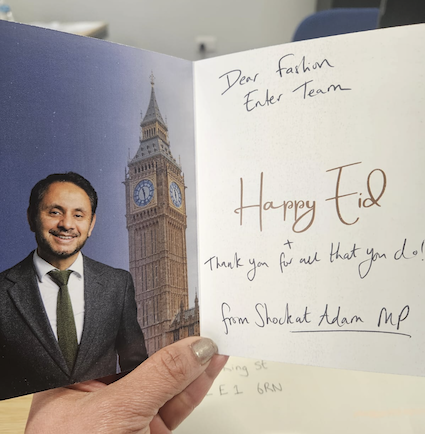 Dear Fashion
Enter Team
Happy Eid
+
Thank you for all that you do!
from Shockat Adam MP
St
LE1 6RN